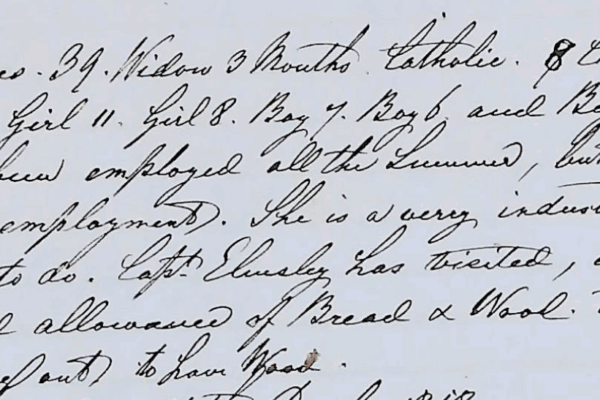 39. Widow 3 Months Catholic. 8
Girl 11. Girl 8. Boy 7. Boy 6 and
been employed all the Summer, but
employment. She is a very indust
to do. Capt. Elmsley has visited,
allowance of Bread & Wool.
out to have Wood.